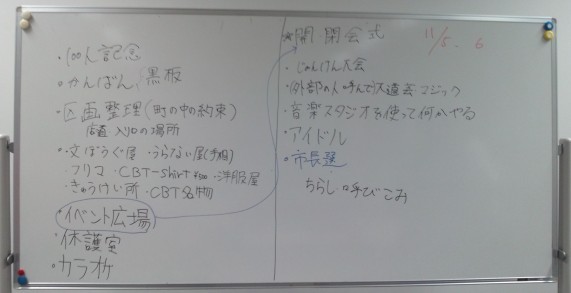 ・100人記念
・かんばん、黒板
・区画整理(町の中の約束)
店置 入り口の場所
・文ぼうぐ屋 ・うらない屋(手相)
・フリマ ・CBT-shirt ・洋服屋
・きゅうけい所 ・CBT名物
・イベント広場
・休護室
・カラオケ
★開閉会式 11/5. 6
・じゃんけん大会
・(外部の人呼んで)大道芸、マジック
・音楽スタジオを使って何かやる
・アイドル
・市長選
ちらし・呼びこみ